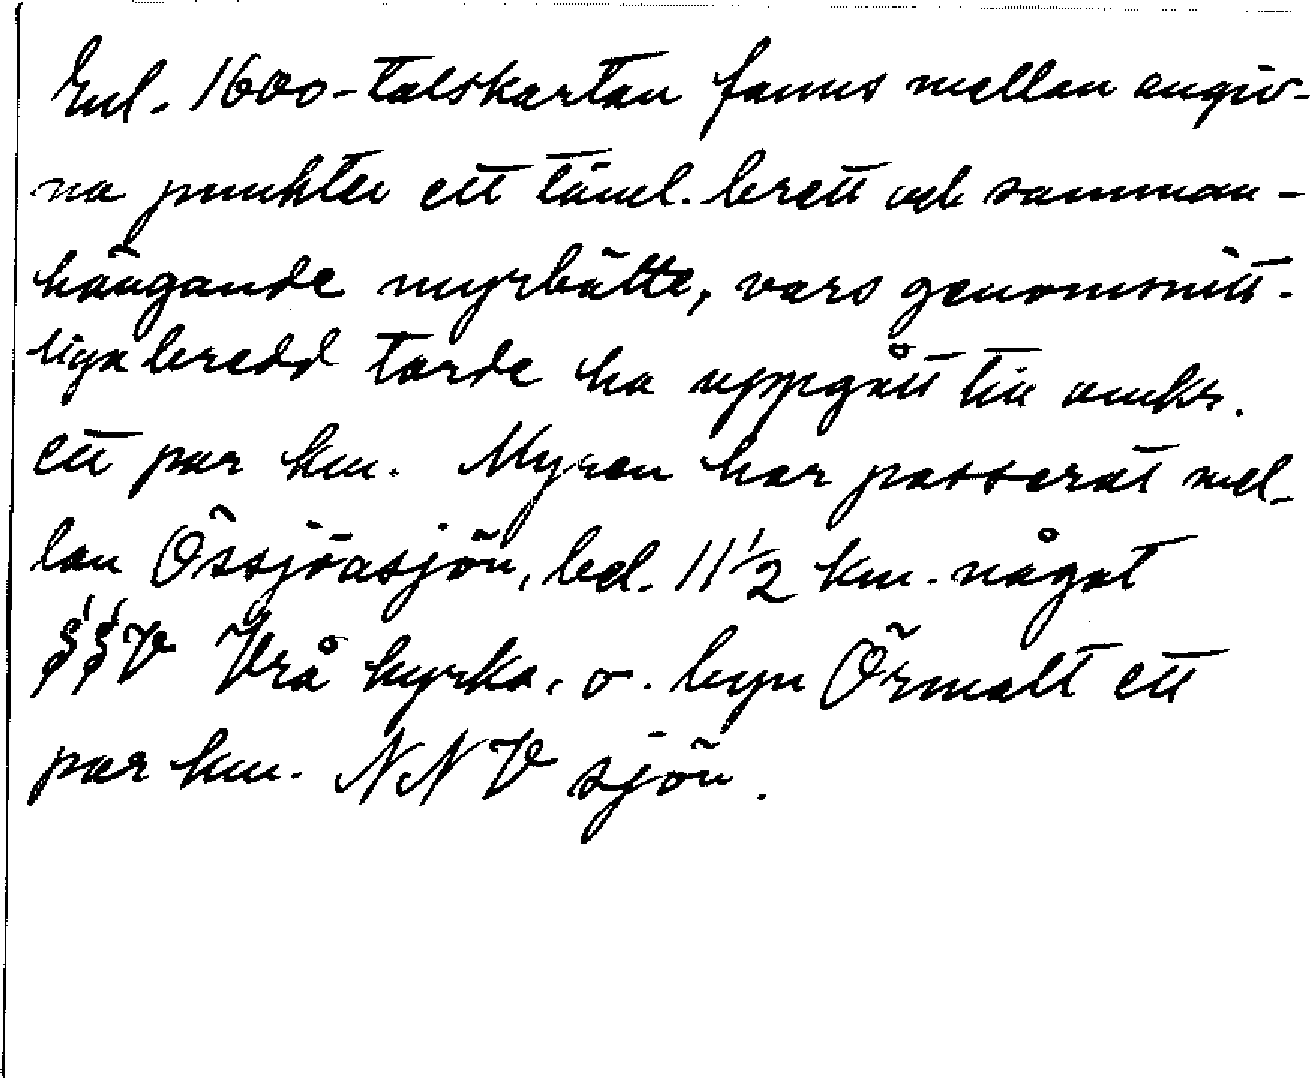 Enl. 1600-talskartan fanns mellan angiv-
na punkter ett täml. brett och samman-
hängande myrbälte, vars genomsnitt-
liga bredd torde ha uppgått till omkr.
ett par km. Myren har passerat mel-
lan Össjöasjön, bel. 11½ km. något
SSV Vrå kyrka, o. byn Örmalt ett
par km. NNV sjön.